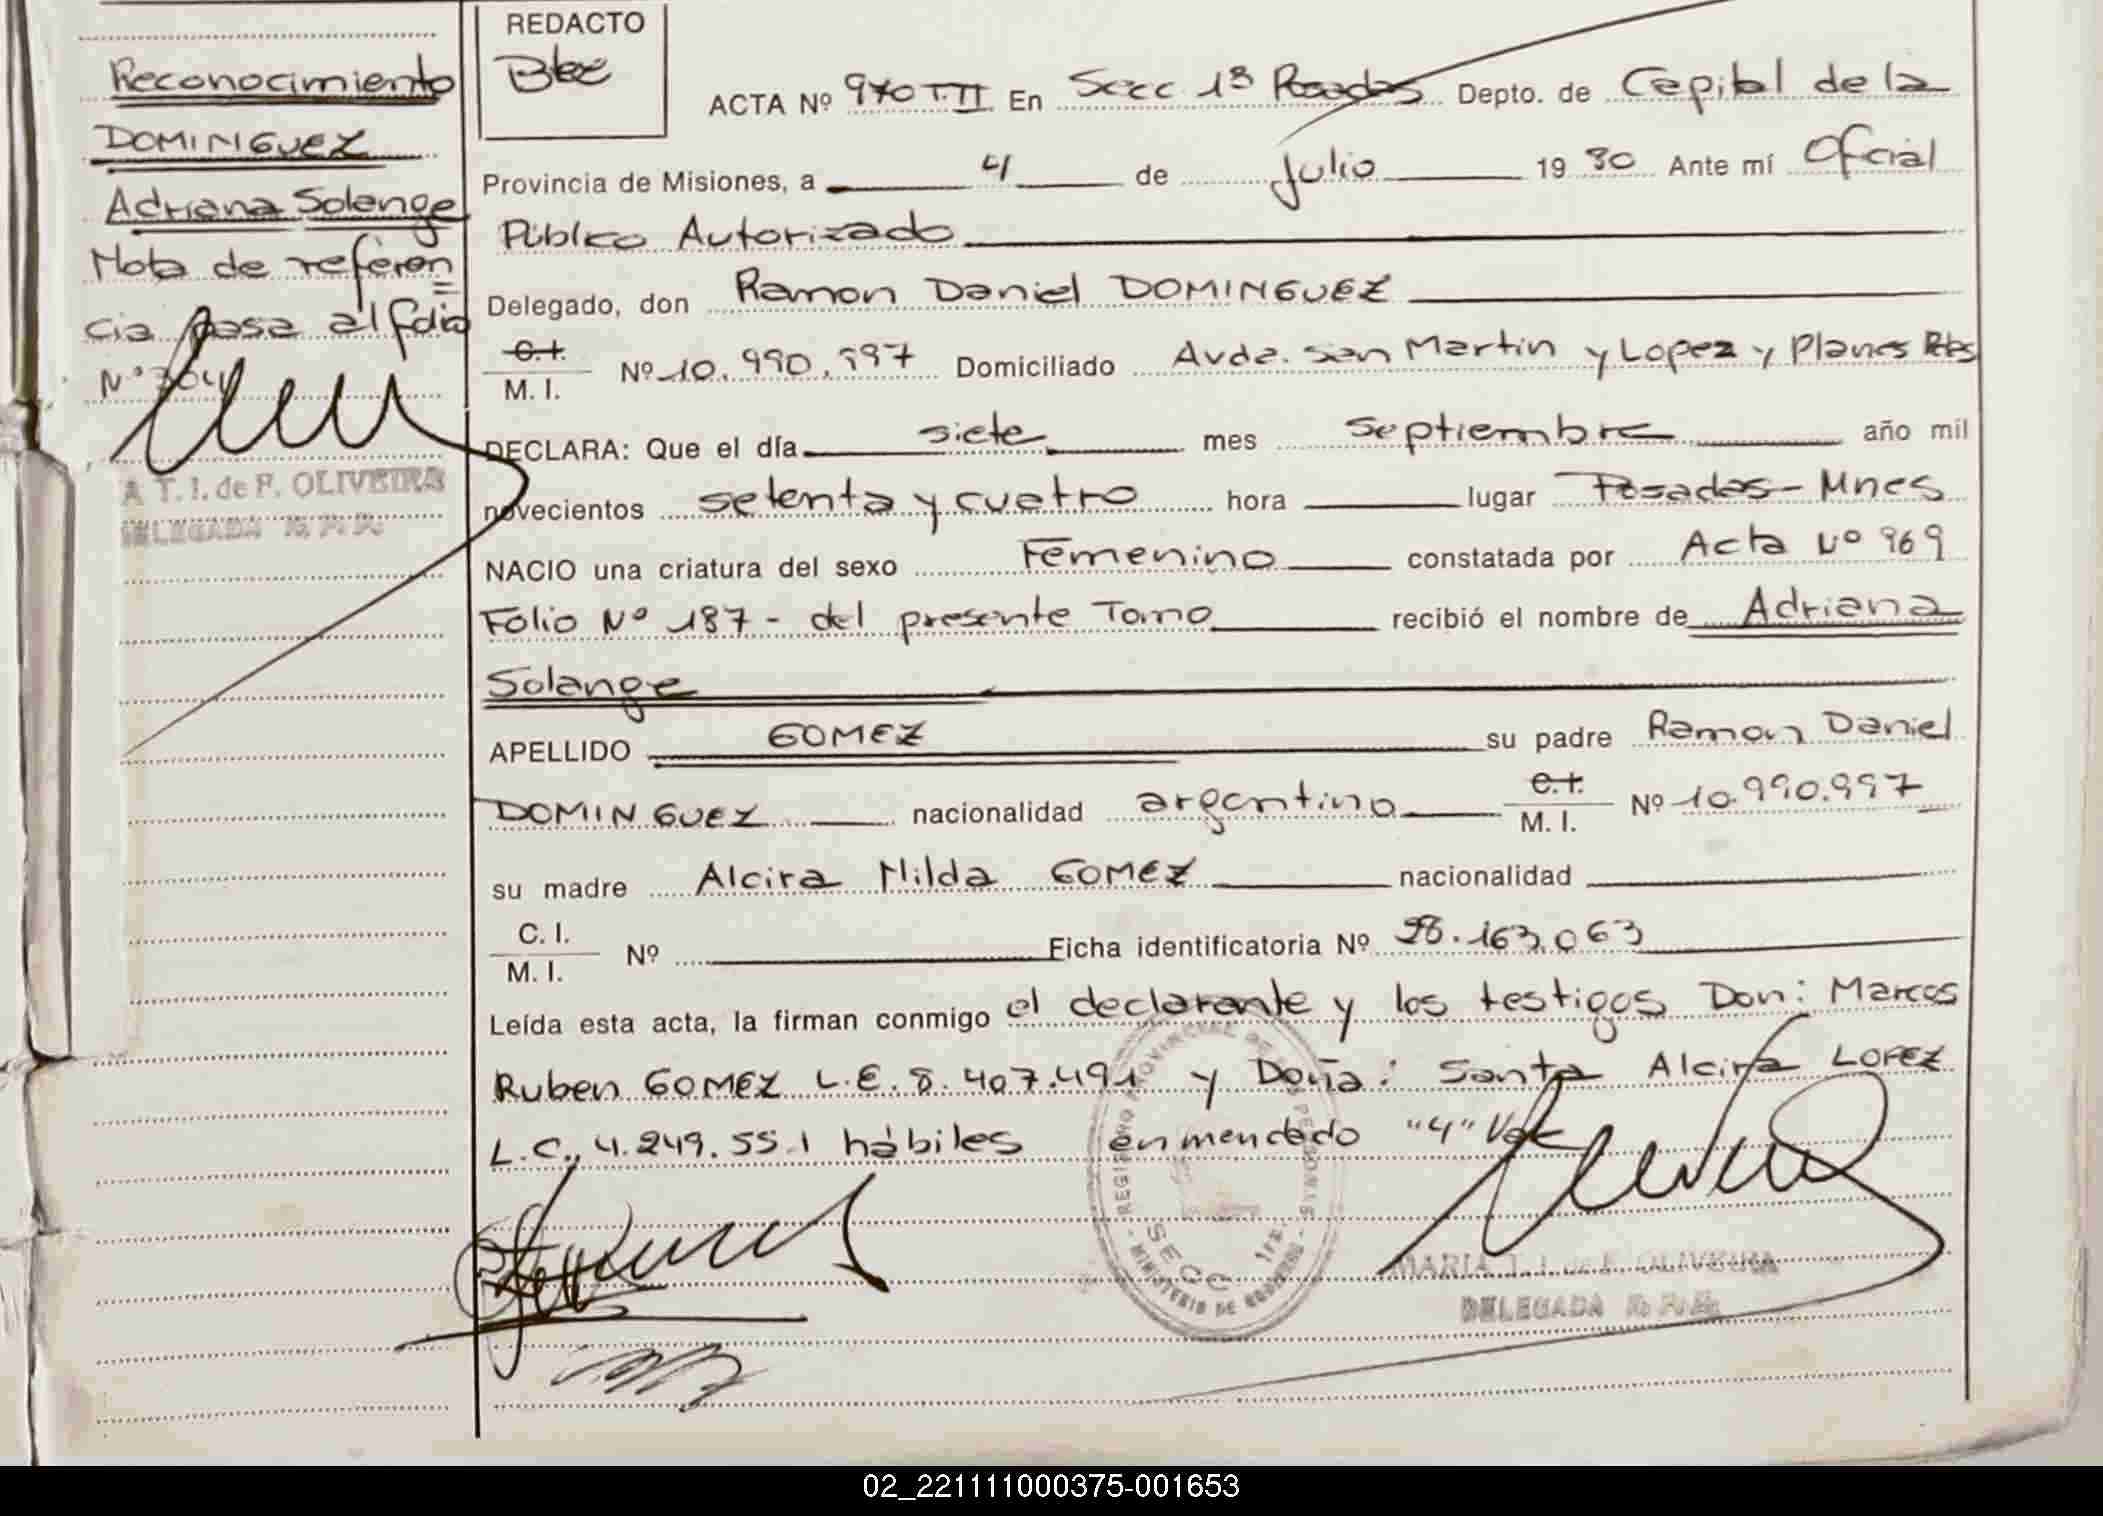 Reconocimiento
DOMINGUEZ
Adriana Solange
Nota de referen
cia pasa al folio
Nº 304
A T. I. de F. OLIVEIRA
DELEGADA R. P. P.
REDACTO
ACTA Nº 970 T.II En Secc 1ª Posadas Depto. de Capital de la
Provincia de Misiones, a 4 de Julio 19 80 Ante mí Oficial
Público Autorizado
Delegado, don Ramon Daniel DOMINGUEZ
C.I.
M. I. Nº 10.990.997 Domiciliado Avda. San Martin y Lopez y Planes Pdas
DECLARA: Que el día siete mes septiembre año mil
novecientos setenta y cuatro hora lugar Posadas - Mnes
NACIO una criatura del sexo Femenino constatada por Acta Nº 969
Folio Nº 187 - del presente Tomo recibió el nombre de Adriana
Solange
APELLIDO GOMEZ su padre Ramon Daniel
DOMINGUEZ nacionalidad argentino C.I. M. I. Nº 10.990.997
su madre Alcira Nilda GOMEZ nacionalidad
C. I.
M. I. Nº Ficha identificatoria Nº 28.163.063
Leída esta acta, la firman conmigo el declarante y los testigos Don: Marcos
Ruben GOMEZ L.E. 8.407.491 y Doña: Santa Alcira LOPEZ
L.C. 4.249.551 hábiles enmendado "4" Vale
REGISTRO PROVINCIAL DE LAS PERSONAS
SECC 1ra.
MINISTERIO DE GOBIERNO
MARIA T. I. de F. OLIVEIRA
DELEGADA R. P. P.
02_221111000375-001653